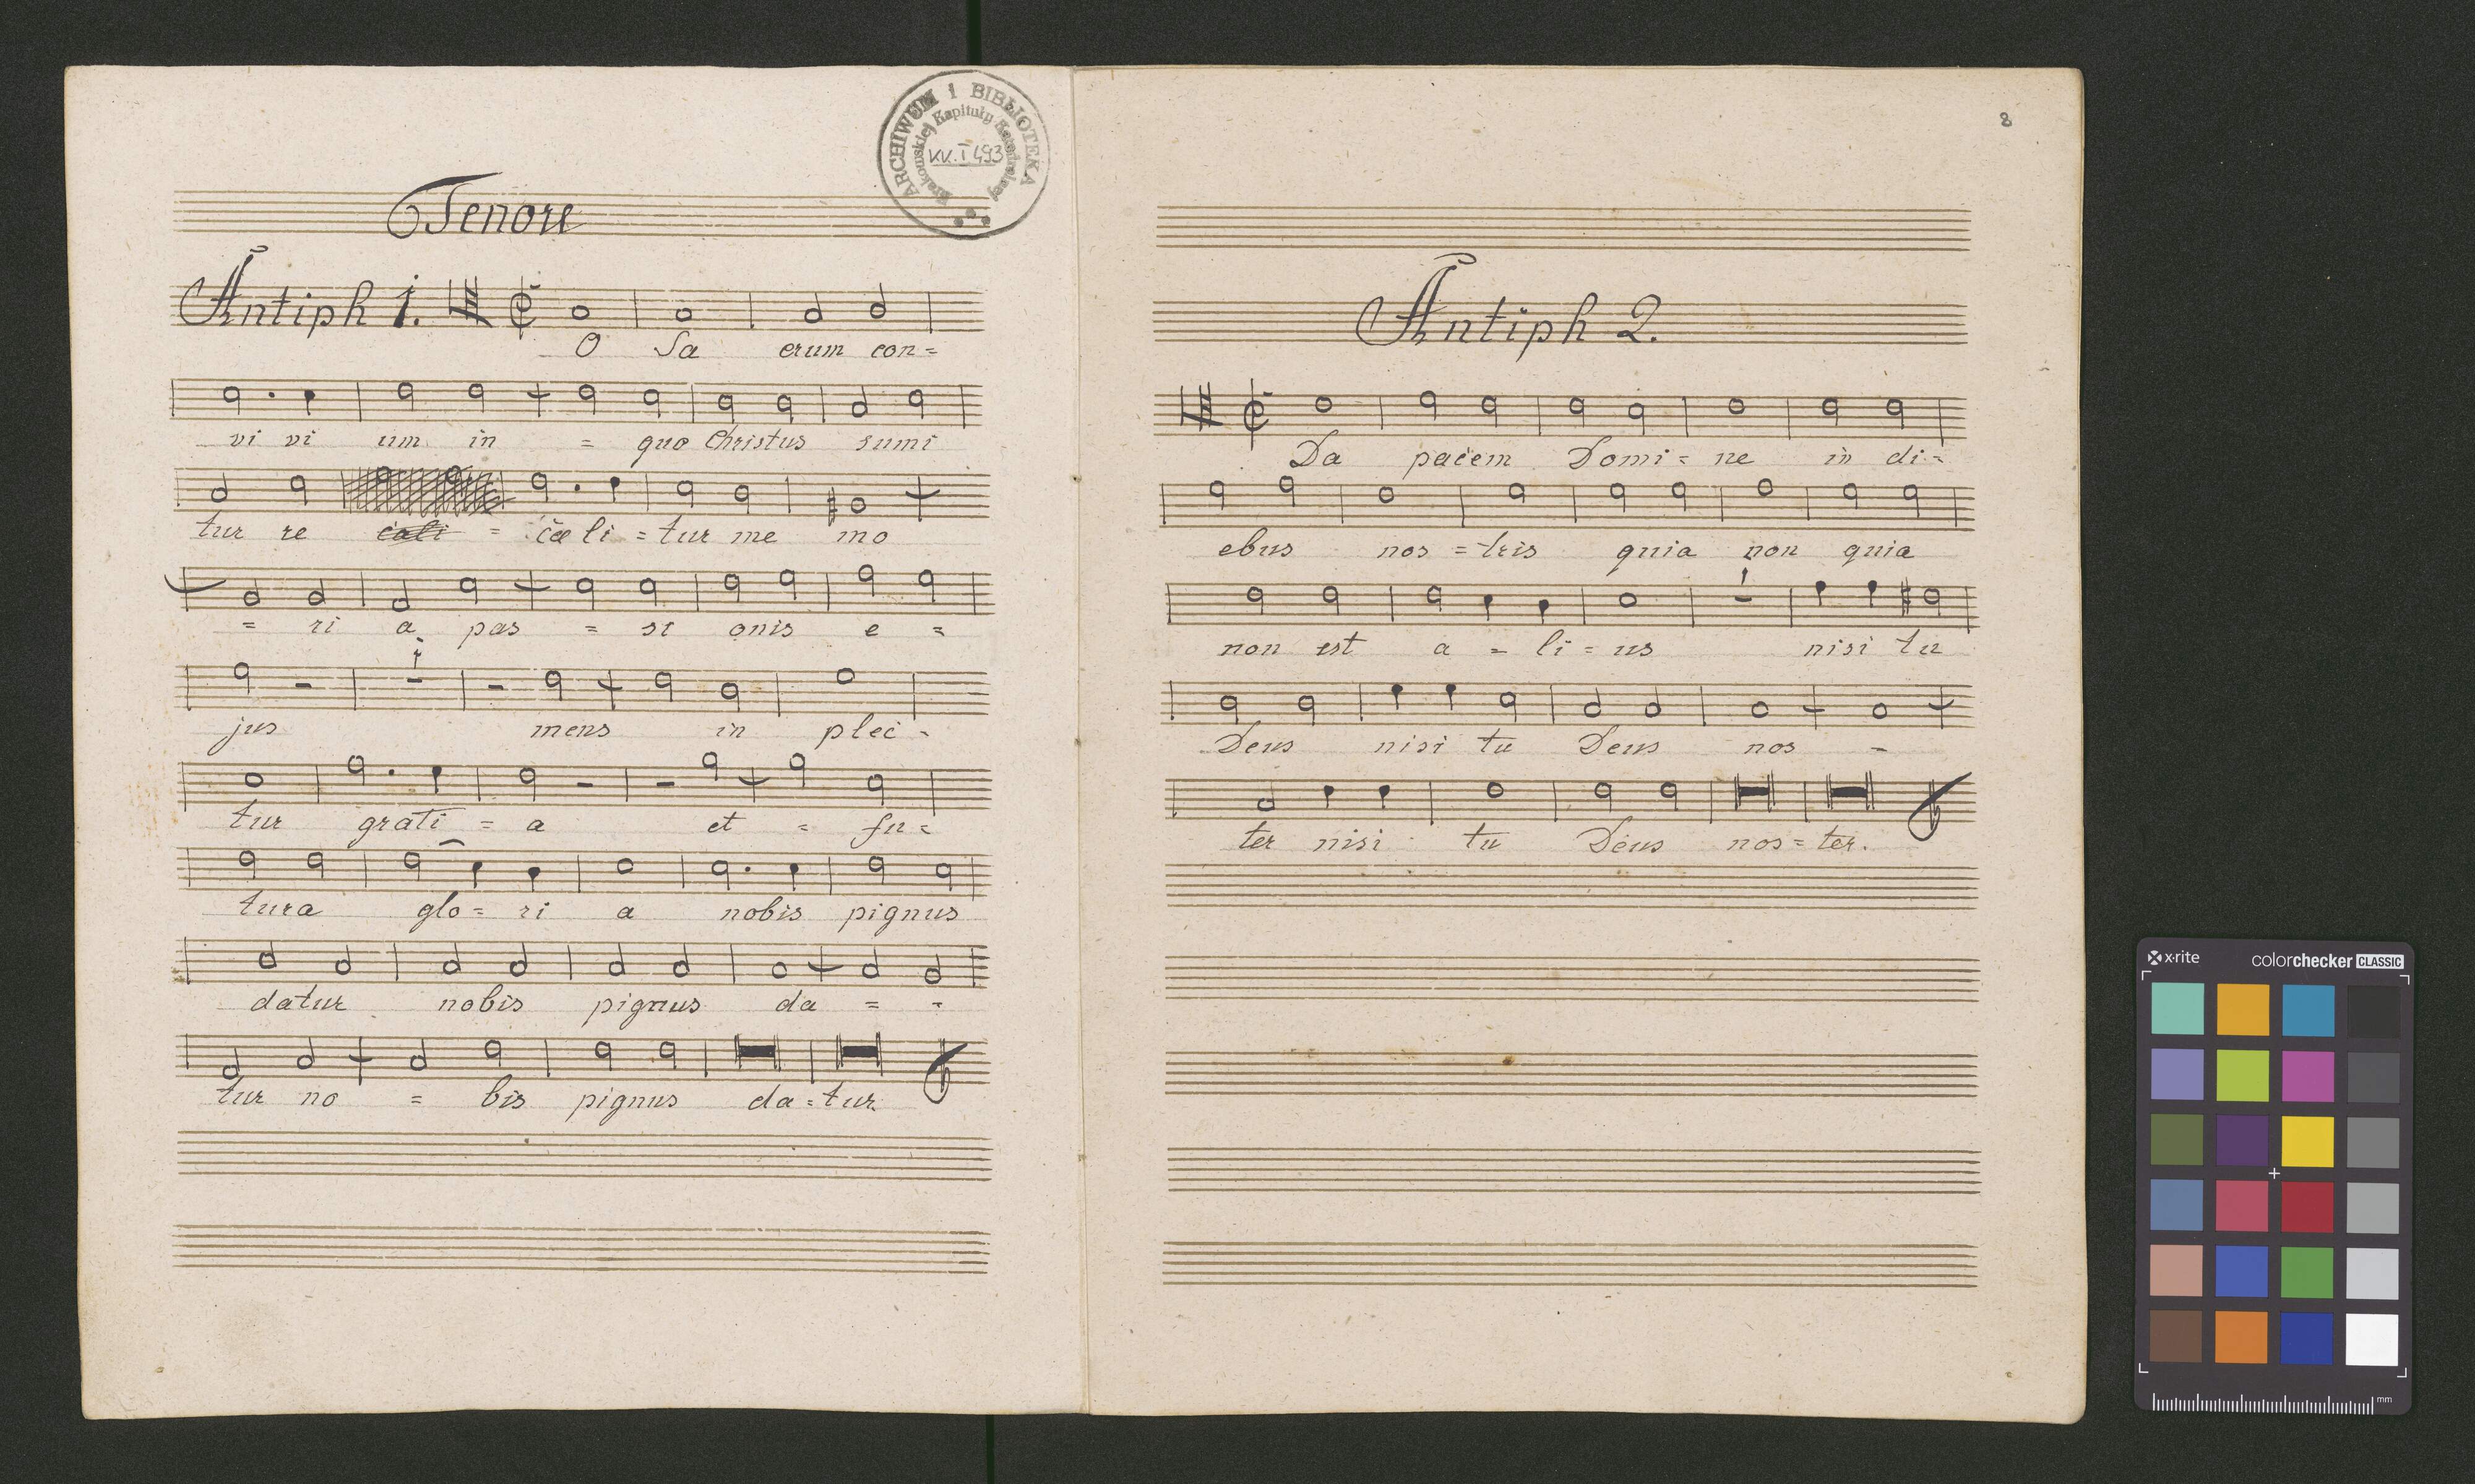 ARCHIWUM I BIBLIOTEKA
Krakowskiej Kapituły Katedralnej
KK.I.493
Tenore
Antiph 1.
O Sa crum con=
vi vi um in = quo Christus sumi
tur re coli = cœ li = tur me mo
= ri a pas = si onis e =
jus mens in plec -
tur grati = a et = fu =
tura glo = ri a nobis pignus
datur nobis pignus da = -
tur no = bis pignus da = tur.
8
Antiph 2.
Da pacem Domi = ne in di -
ebus nos = tris quia non quia
non est a = li = us nisi tu
Deus nisi tu Deus nos -
ter nisi tu Deus nos = ter.
x-rite colorchecker CLASSIC
mm